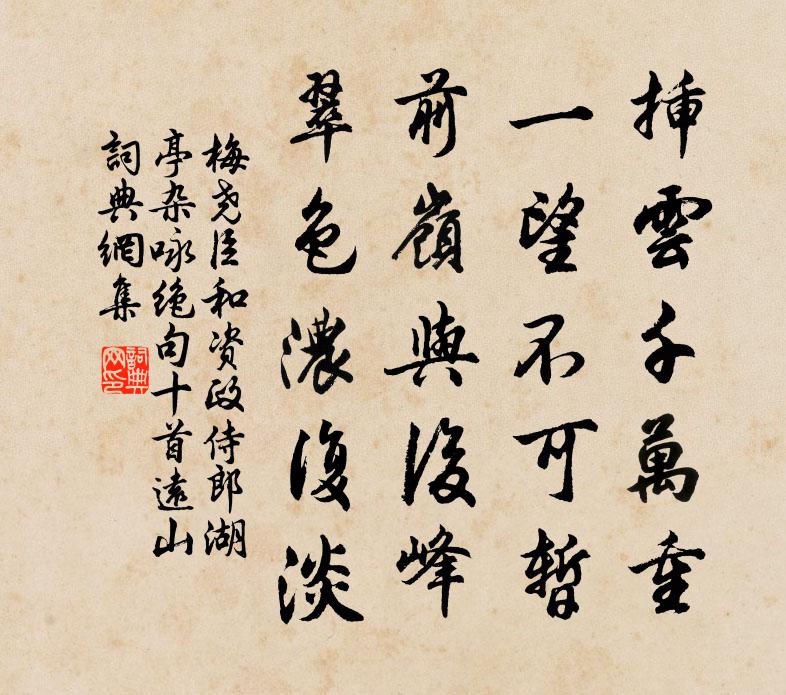 插雲千萬重
一望不可暫
前嶺與後峰
翠色濃復淡
梅尧臣和资政侍郎湖
亭杂咏绝句十首遠山
詞典網集
詞典網印